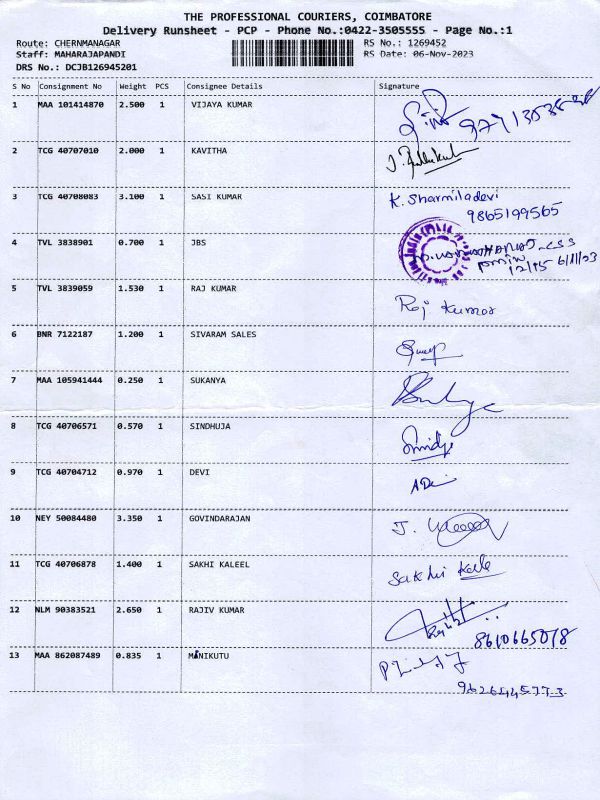 THE PROFESSIONAL COURIERS, COIMBATORE
Delivery Runsheet - PCP - Phone No.:0422-3505555 - Page No.:1
Route: CHERNMANAGAR RS No.: 1269452
Staff: MAHARAJAPANDI RS Date: 06-Nov-2023
DRS No.: DCJB126945201
S No Consignment No Weight PCS Consignee Details Signature
1 MAA 101414870 2.500 1 VIJAYA KUMAR
2 TCG 40707010 2.000 1 KAVITHA
3 TCG 40708083 3.100 1 SASI KUMAR K. Sharmiladevi
9865199565
4 TVL 3838901 0.700 1 JBS
12/15 6/11/23
5 TVL 3839059 1.530 1 RAJ KUMAR Raj Kumar
6 BNR 7122187 1.200 1 SIVARAM SALES
7 MAA 105941444 0.250 1 SUKANYA
8 TCG 40706571 0.570 1 SINDHUJA
9 TCG 40704712 0.970 1 DEVI
10 NEY 50084480 3.350 1 GOVINDARAJAN
11 TCG 40706878 1.400 1 SAKHI KALEEL Sakhi
12 NLM 90383521 2.650 1 RAJIV KUMAR
8610665078
13 MAA 862087489 0.835 1 MANIKUTU
9626445773